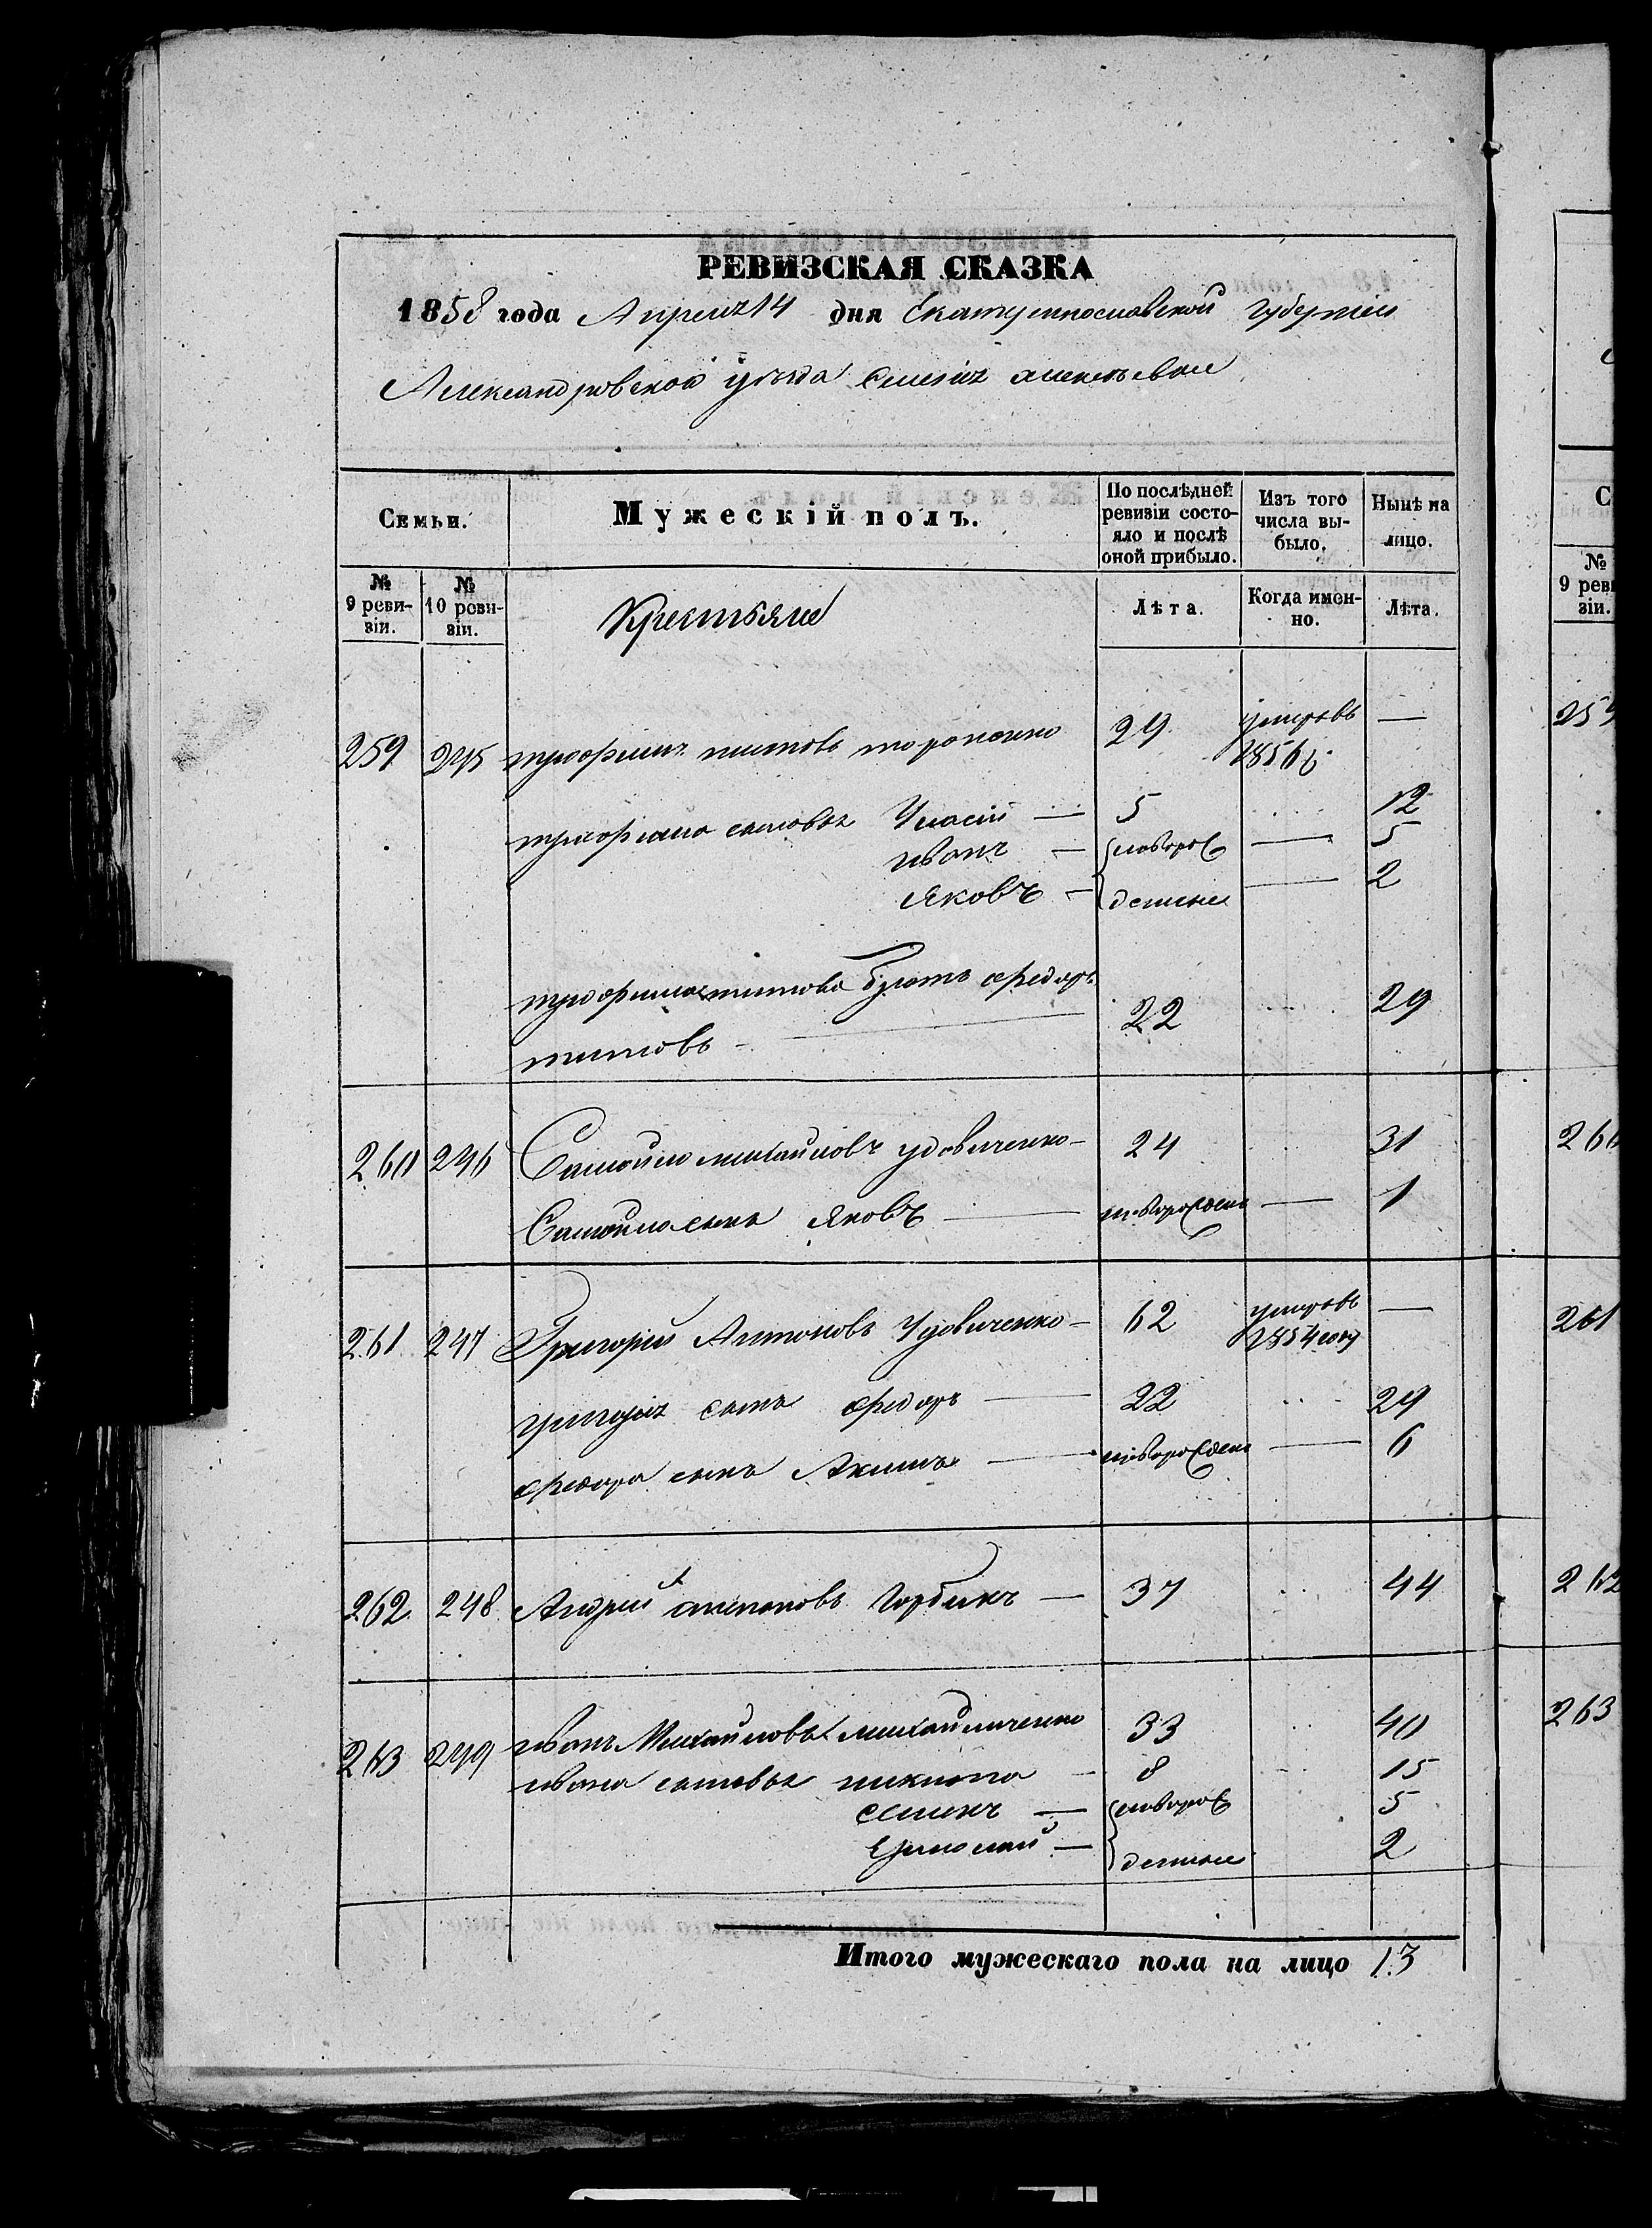 РЕВИЗСКАЯ СКАЗКА
1858 года Апреля 14 дня Екатеринославской Губернии
Александровской уезда
Семьи. Мужескій полъ. По послѣдней ревизіи состояло и послѣ оной прибыло. Изъ того числа выбыло. Нынѣ на лицо.
№ 9 ревизіи. № 10 ревизіи. Крестьяне Лѣта. Когда именно. Лѣта.
259 245 титовъ 29 умеръ въ —
1856 г.
сыновья 5 12
иванъ — новорож — 5
Яковъ — денные — 2
братъ федоръ
титовъ — 22 29
260 246 Самойло михайловъ удовиченко — 24 31
Самойла сынъ Яковъ — новорожден — 1
261 247 Григорий Антоновъ Удовиченко — 62 умеръ въ —
1854 году
григория сынъ федоръ — 22 29
федора сынъ Акимъ — новорожден — 6
262 248 Андрей горбикъ — 37 44
263 249 иванъ Михайловъ михайличенко 33 40
ивана сыновья никита — 8 15
семенъ — новорож 5
Ермолай — денные 2
Итого мужескаго пола на лицо 13
259
260
261
262
263
№
9 реви
зіи.